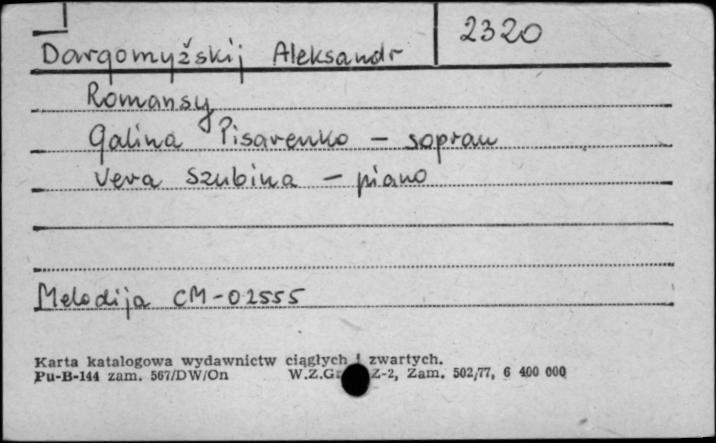 2320
Dargomyžskij Aleksandr
Romansy
Galina Pisarenko – sopran
Vera Szubina – piano
Melodija CM-02555
Karta katalogowa wydawnictw ciągłych i zwartych.
Pu-B-144 zam. 567/DW/On W.Z.G. Z-2, Zam. 502/77, 6 400 000